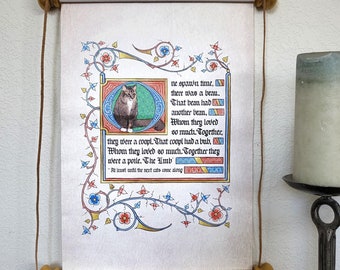 One spawn time,
there was a beau..
That beau had
another beau.
Whom they loved
so much. Together,
they were a coopl. That coopl had a bub,
Whom they loved so much. Together they
were a potle. The Emb
* At least until the next cats come along